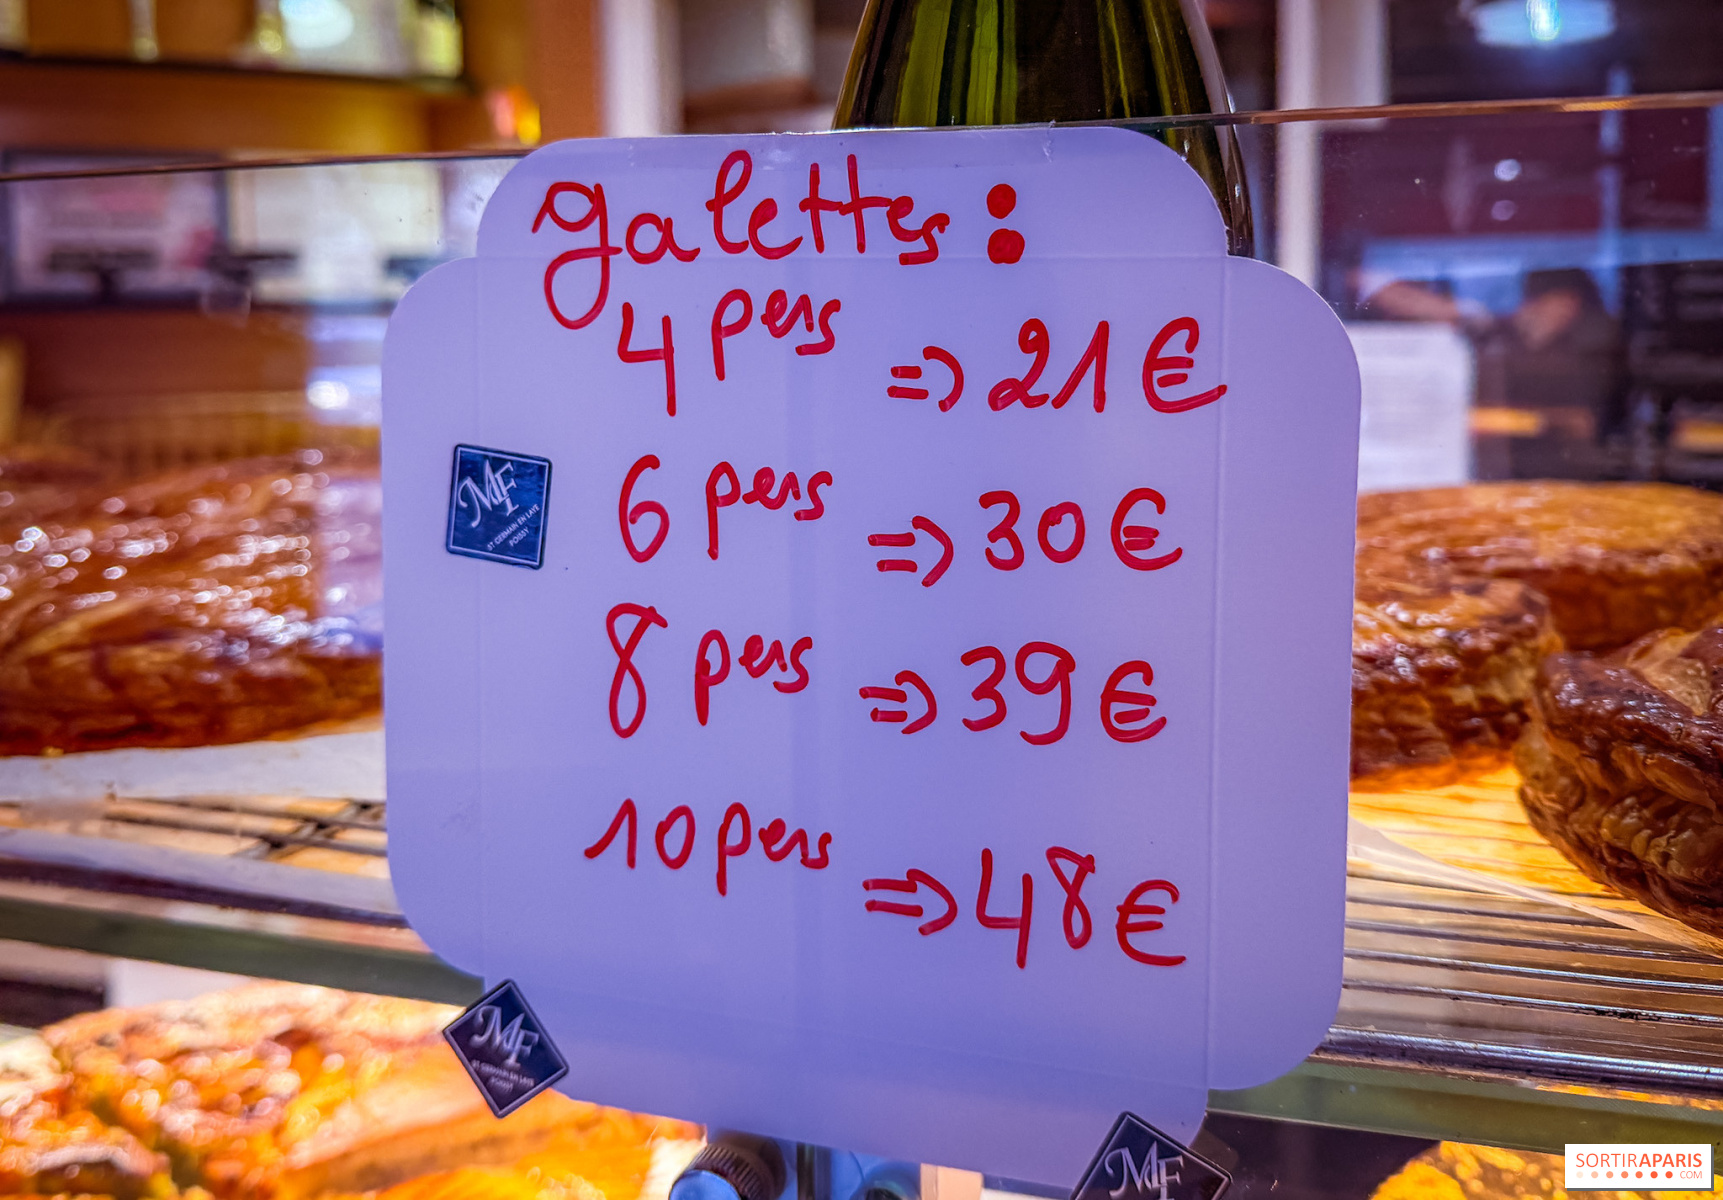 galettes :
4 pers => 21 €
6 pers => 30 €
8 pers => 39 €
10 pers => 48 €
MF
ST GERMAIN EN LAYE
POISSY
MF
ST GERMAIN EN LAYE
POISSY
MF
SORTIRAPARIS
.COM